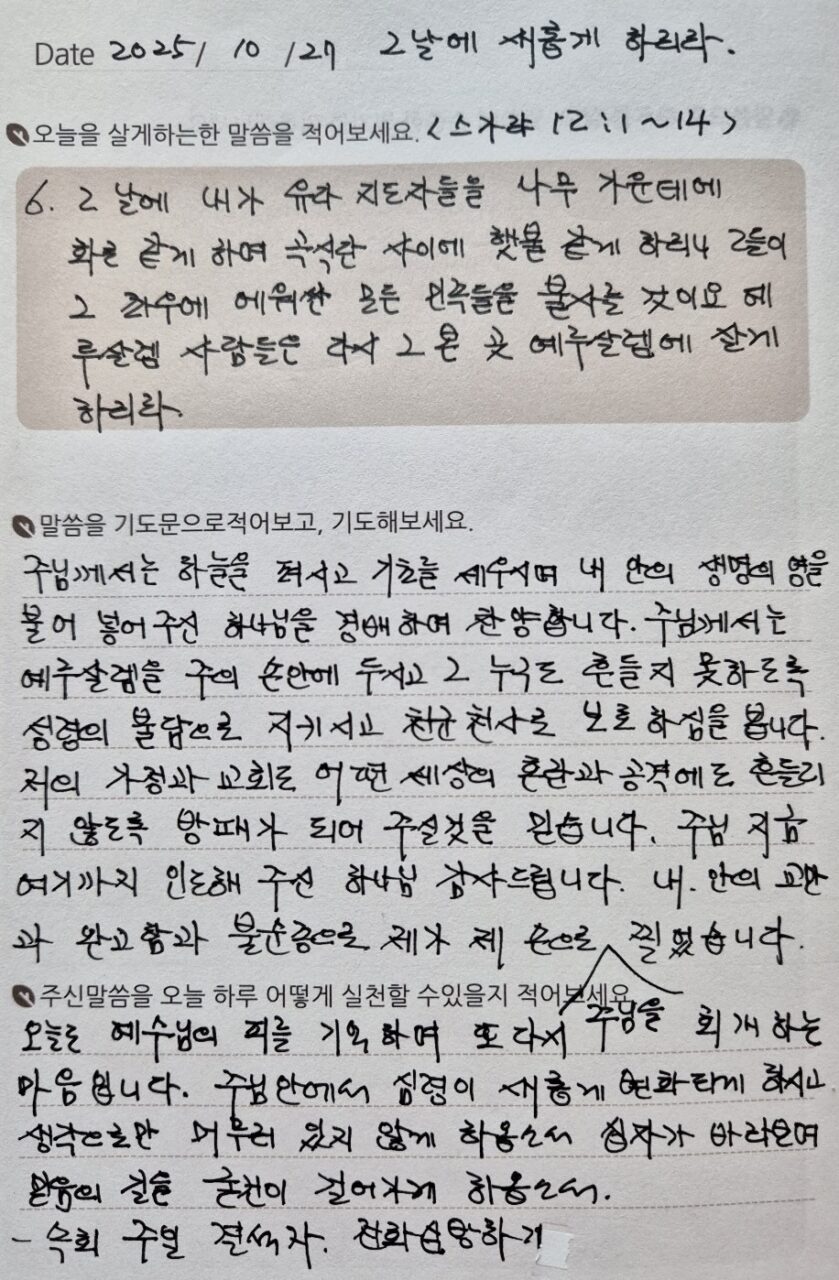 Date 2025/ 10 /27 그날에 새롭게 하리라.
오늘을 살게하는한 말씀을 적어보세요. <스가랴 12:1~14>
6. 그 날에 내가 유다 지도자들을 나무 가운데에
화로 같게 하며 곡식단 사이에 횃불 같게 하리니 그들이
그 좌우에 에워싼 모든 민족들을 불사를 것이요 예
루살렘 사람들은 다시 그 본 곳 예루살렘에 살게
하리라.
말씀을 기도문으로적어보고, 기도해보세요.
주님께서는 하늘을 펴시고 기초를 세우시며 내 안의 생명의 영을
불어 넣어주신 하나님을 경배하며 찬양합니다. 주님께서는
예루살렘을 주의 손안에 두시고 그 누구도 흔들지 못하도록
성령의 불담으로 지키시고 천군천사로 보호하심을 봅니다.
저의 가정과 교회도 어떤 세상의 혼란과 공격에도 흔들리
지 않도록 방패가 되어 주실것을 믿습니다. 주님 지금
여기까지 인도해 주신 하나님 감사드립니다. 내. 안의 교만
과 완고함과 불순종으로 제가 제 손으로 주님을 찔렀습니다.
주신말씀을 오늘 하루 어떻게 실천할 수있을지 적어보세요
오늘도 예수님의 피를 기억하며 또다시 회개하는
마음입니다. 주님안에서 심령이 새롭게 변화되게 하시고
생각으로만 머무러 있지 않게 하옵소서 십자가 바라보며
믿음의 길을 굳건히 걸어가게 하옵소서.
- 속회 주일 결석자. 전화심방하기